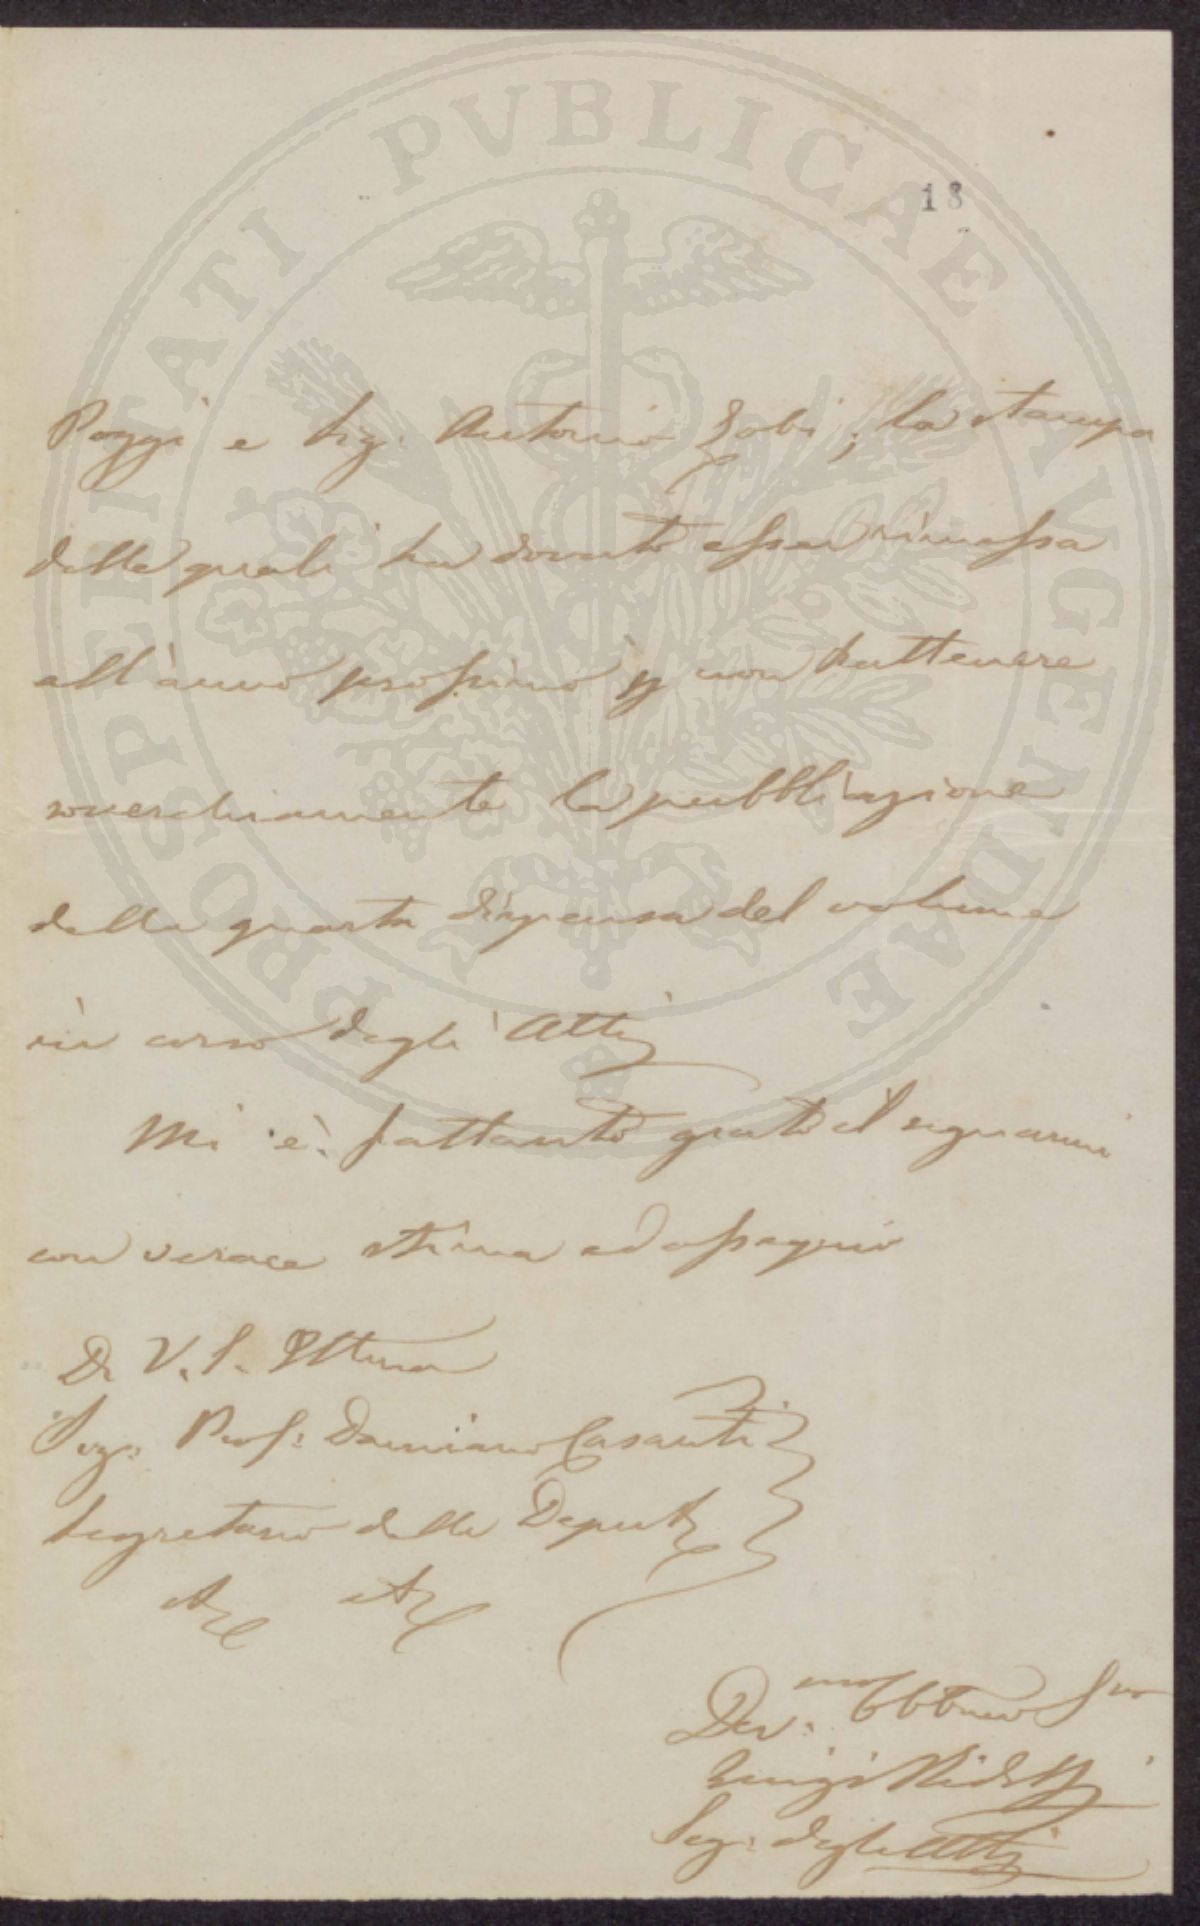 PROSPERITATI PVBLICAE AVGENDAE
18
Poggi e Sig. Antonio Zobi, la stampa
delle quali ha dovuto esser rimessa
all'anno prossimo p non trattenere
soverchiamente la pubblicazione
della quarta dispensa del volume
in corso degli Atti
Mi è frattanto grato il segnarmi
con verace stima ed ossequio
Di V. S. Ill.ma
Sig. Prof. Damiano Casanti
Segretario della Deput
Dev.mo Obbl.mo Ser
Luigi Ridolfi
Seg. degli Atti